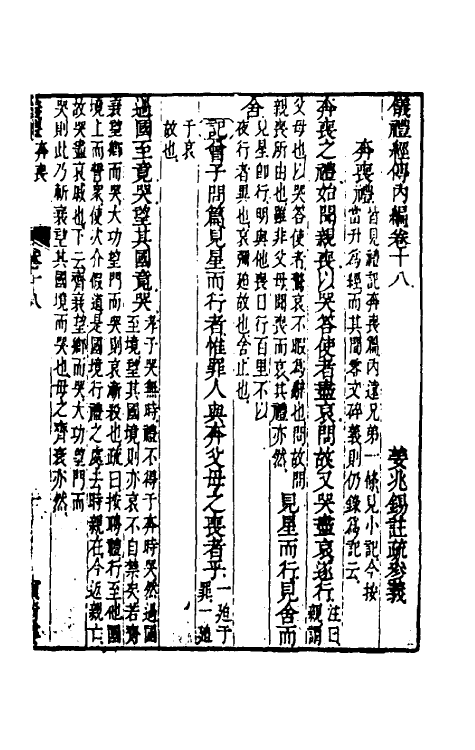 儀禮經傳內編卷十八
姜兆錫註疏參義
奔喪禮
皆見禮記奔喪篇內遠兄弟一條見小記今按
當升爲經而其間零文碎義則仍錄爲記云
奔喪之禮始聞親喪以哭答使者盡哀問故又哭盡哀遂行
註曰親謂
父母也以哭答使者驚哀不暇爲辭也問故問
親喪所由也雖非父母聞喪而哀其禮亦然
見星而行見舍而
舍
見星卽行明與他喪日行百里不以
夜行者異也哀彌廹故也舍止也
記曾子問篇見星而行者惟罪人與奔父母之喪者乎
一廹于
罪一廹
于哀
故也
過國至竟哭望其國竟哭
孝子哭無時禮不得于奔時哭然過國
至境望其國境則亦哀不自禁矣若齊
衰望鄉而哭大功望門而哭則哀漸殺也疏曰按聘禮行至他國
境上而誓衆使次介假道是國境行禮之處去時親在今近親亡
故哭盡哀戚也下云齊衰望鄉而哭大功望門而
哭則此乃斬衰望其國境而哭也母之齊衰亦然
奔喪
卷十八